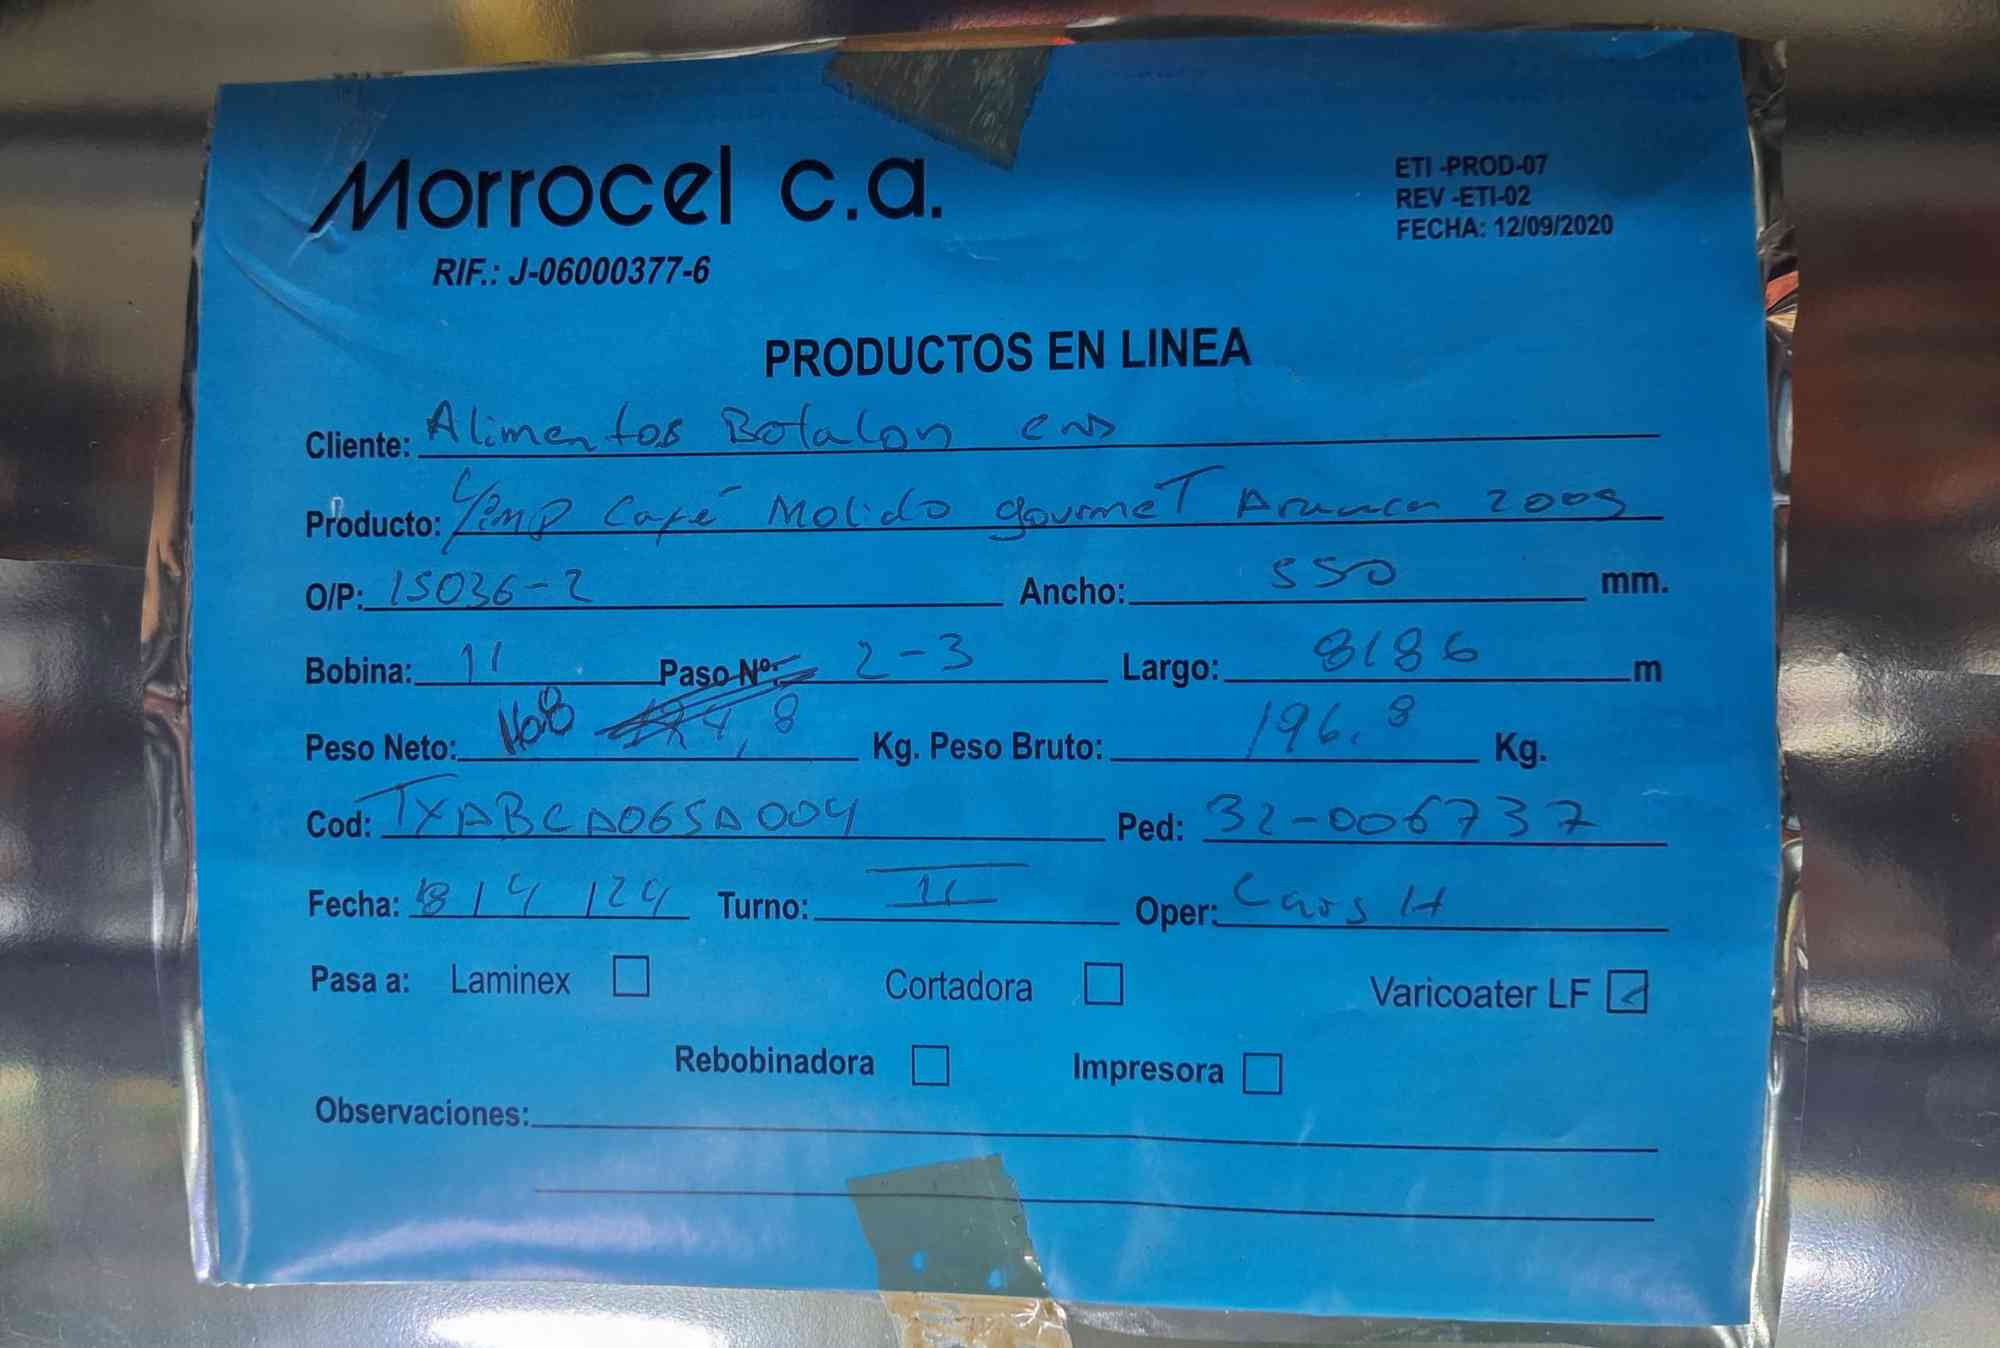 Morrocel c.a.
RIF.: J-06000377-6
ETI -PROD-07
REV -ETI-02
FECHA: 12/09/2020
PRODUCTOS EN LINEA
Cliente: Alimentos Botalon
Producto: Café Molido gourmet Arauca 200g
O/P: 15036-2 Ancho: 550 mm.
Bobina: 11 Paso Nº: 2-3 Largo: 8186 m
Peso Neto: Kg. Peso Bruto: 196.8 Kg.
Cod: TXABCA065A004 Ped: 32-006737
Fecha: 8/4/24 Turno: II Oper: H
Pasa a: Laminex Cortadora Varicoater LF
Rebobinadora Impresora
Observaciones: